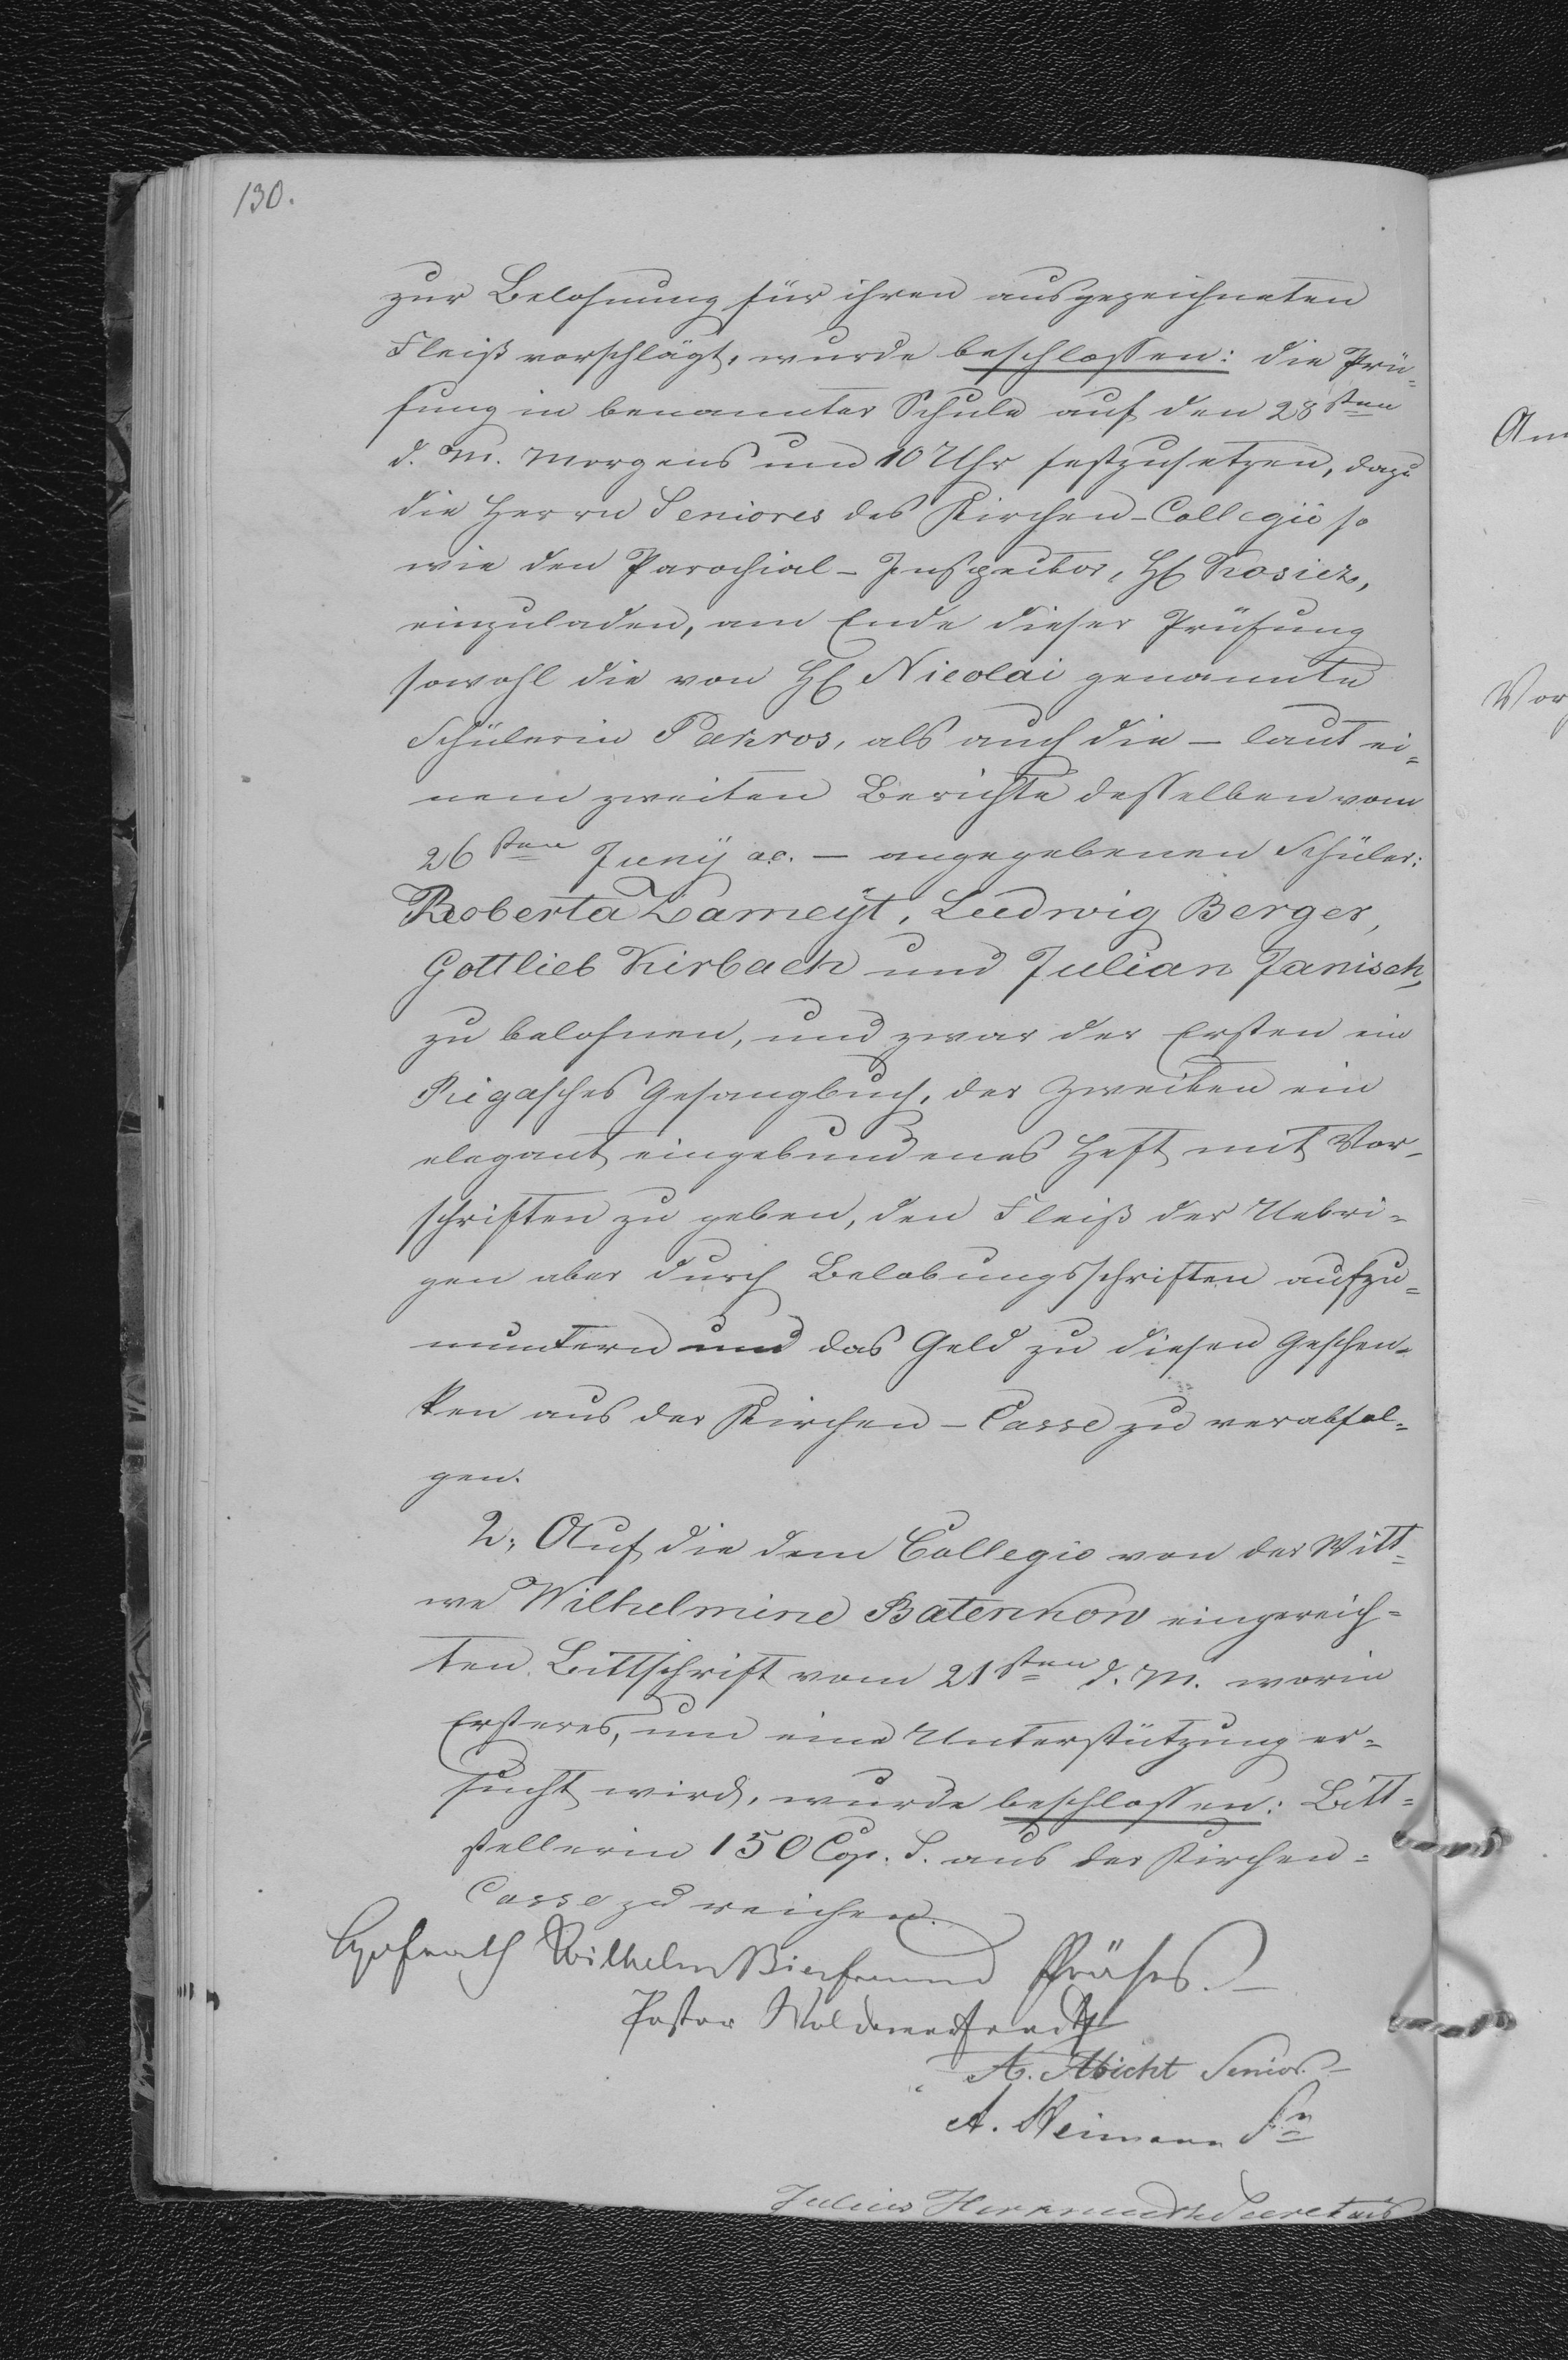 130.
zur Belohnung für ihren ausgezeichneten
Fleiß vorschlägt, wurde beschloßen: die Prü=
fung in benannter Schule auf den 28sten
d. M. Morgens um 10 Uhr festzusetzen, dazu
die Herrn Seniores des Kirchen-Collegii so
wie den Parochial-Inspector, H. Kosicz,
einzuladen, am Ende dieser Prüfung
sowohl die von H. Nicolai genannte
Schülerin Pakros, als auch die – laut ei=
nem zweiten Berichte desselben vom
26sten Junÿ ac. – angegebenen Schüler:
Roberta Lameÿt, Ludwig Berger,
Gottlieb Kirbach und Julian Janisch,
zu belohnen, und zwar der Ersten ein
Rigasches Gesangbuch, der Zweiten ein
elegant eingebundenes Heft mit Vor-
schriften zu geben, den Fleiß der Uebri=
gen aber durch Belobungsschriften aufzu=
muntern und das Geld zu diesen Geschen=
ken aus der Kirchen-Casse zu verabfol=
gen.
2, Auf die dem Collegio von der Witt=
we Wilhelmine Batenkow eingereich=
ten Bittschrift vom 21sten d. M. worin
Ersteres, um eine Unterstützung er=
sucht wird, wurde beschloßen: Bitt=
stellerin 150 Cop. S. aus der Kirchen=
Casse zu reichen.
Hofrath Wilhelm Bierfreund Präses.
Pastor
A. Abicht Senior
A. Heimann Sn
Julius Secretair
Am
Vor